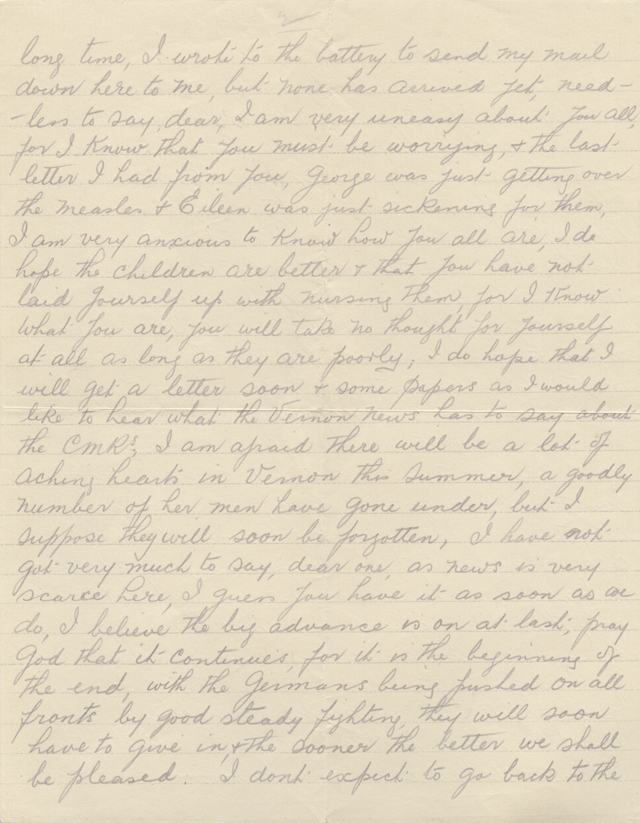 2
long time, I wrote to the battery to send my mail
down here to me, but none has arrived yet, need-
-less to say, dear, I am very uneasy about you all,
for I know that you must be worrying, & the last
letter I had from you, George was just getting over
the measles & Eileen was just sickening for them,
I am very anxious to know how you all are, I do
hope the children are better & that you have not
laid yourself up with nursing them, for I know
what you are, you will take no thought for yourself
at all as long as they are poorly; I do hope that I
will get a letter soon & some papers as I would
like to hear what the Vernon news has to say about
the CMRs, I am afraid there will be a lot of
aching hearts in Vernon this summer, a goodly
number of her men have gone under, but I
suppose they will soon be forgotten, I have not
got very much to say, dear one, as news is very
scarce here, I guess you have it as soon as we
do, I believe the big advance is on at last, pray
God that it continues, for it is the beginning of
the end, with the Germans being pushed on all
fronts by good steady fighting, they will soon
have to give in, & the sooner the better we shall
be pleased. I dont expect to go back to the